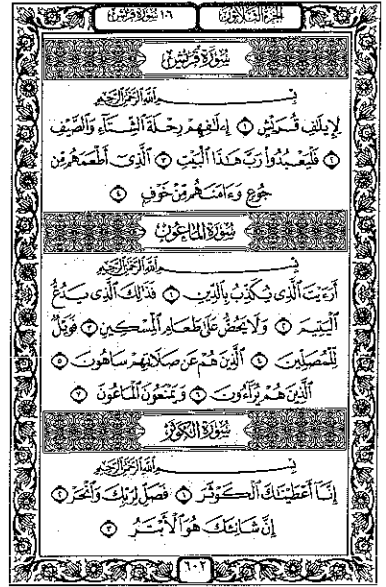 الجزء الثلاثون
١٠٦ سورة قريش
سورة قريش
بسم الله الرحمن الرحيم
لِإِيلَافِ قُرَيْشٍ ١ إِۦلَافِهِمْ رِحْلَةَ الشِّتَاءِ وَالصَّيْفِ
٢ فَلْيَعْبُدُوا رَبَّ هَٰذَا الْبَيْتِ ٣ الَّذِي أَطْعَمَهُم مِّن
جُوعٍ وَءَامَنَهُم مِّنْ خَوْفٍ ٤
سورة الماعون
بسم الله الرحمن الرحيم
أَرَءَيْتَ الَّذِي يُكَذِّبُ بِالدِّينِ ١ فَذَٰلِكَ الَّذِي يَدُعُّ
الْيَتِيمَ ٢ وَلَا يَحُضُّ عَلَىٰ طَعَامِ الْمِسْكِينِ ٣ فَوَيْلٌ
لِّلْمُصَلِّينَ ٤ الَّذِينَ هُمْ عَن صَلَاتِهِمْ سَاهُونَ ٥
الَّذِينَ هُمْ يُرَاءُونَ ٦ وَيَمْنَعُونَ الْمَاعُونَ ٧
سورة الكوثر
بسم الله الرحمن الرحيم
إِنَّا أَعْطَيْنَاكَ الْكَوْثَرَ ١ فَصَلِّ لِرَبِّكَ وَانْحَرْ ٢
إِنَّ شَانِئَكَ هُوَ الْأَبْتَرُ ٣
٦٠٢